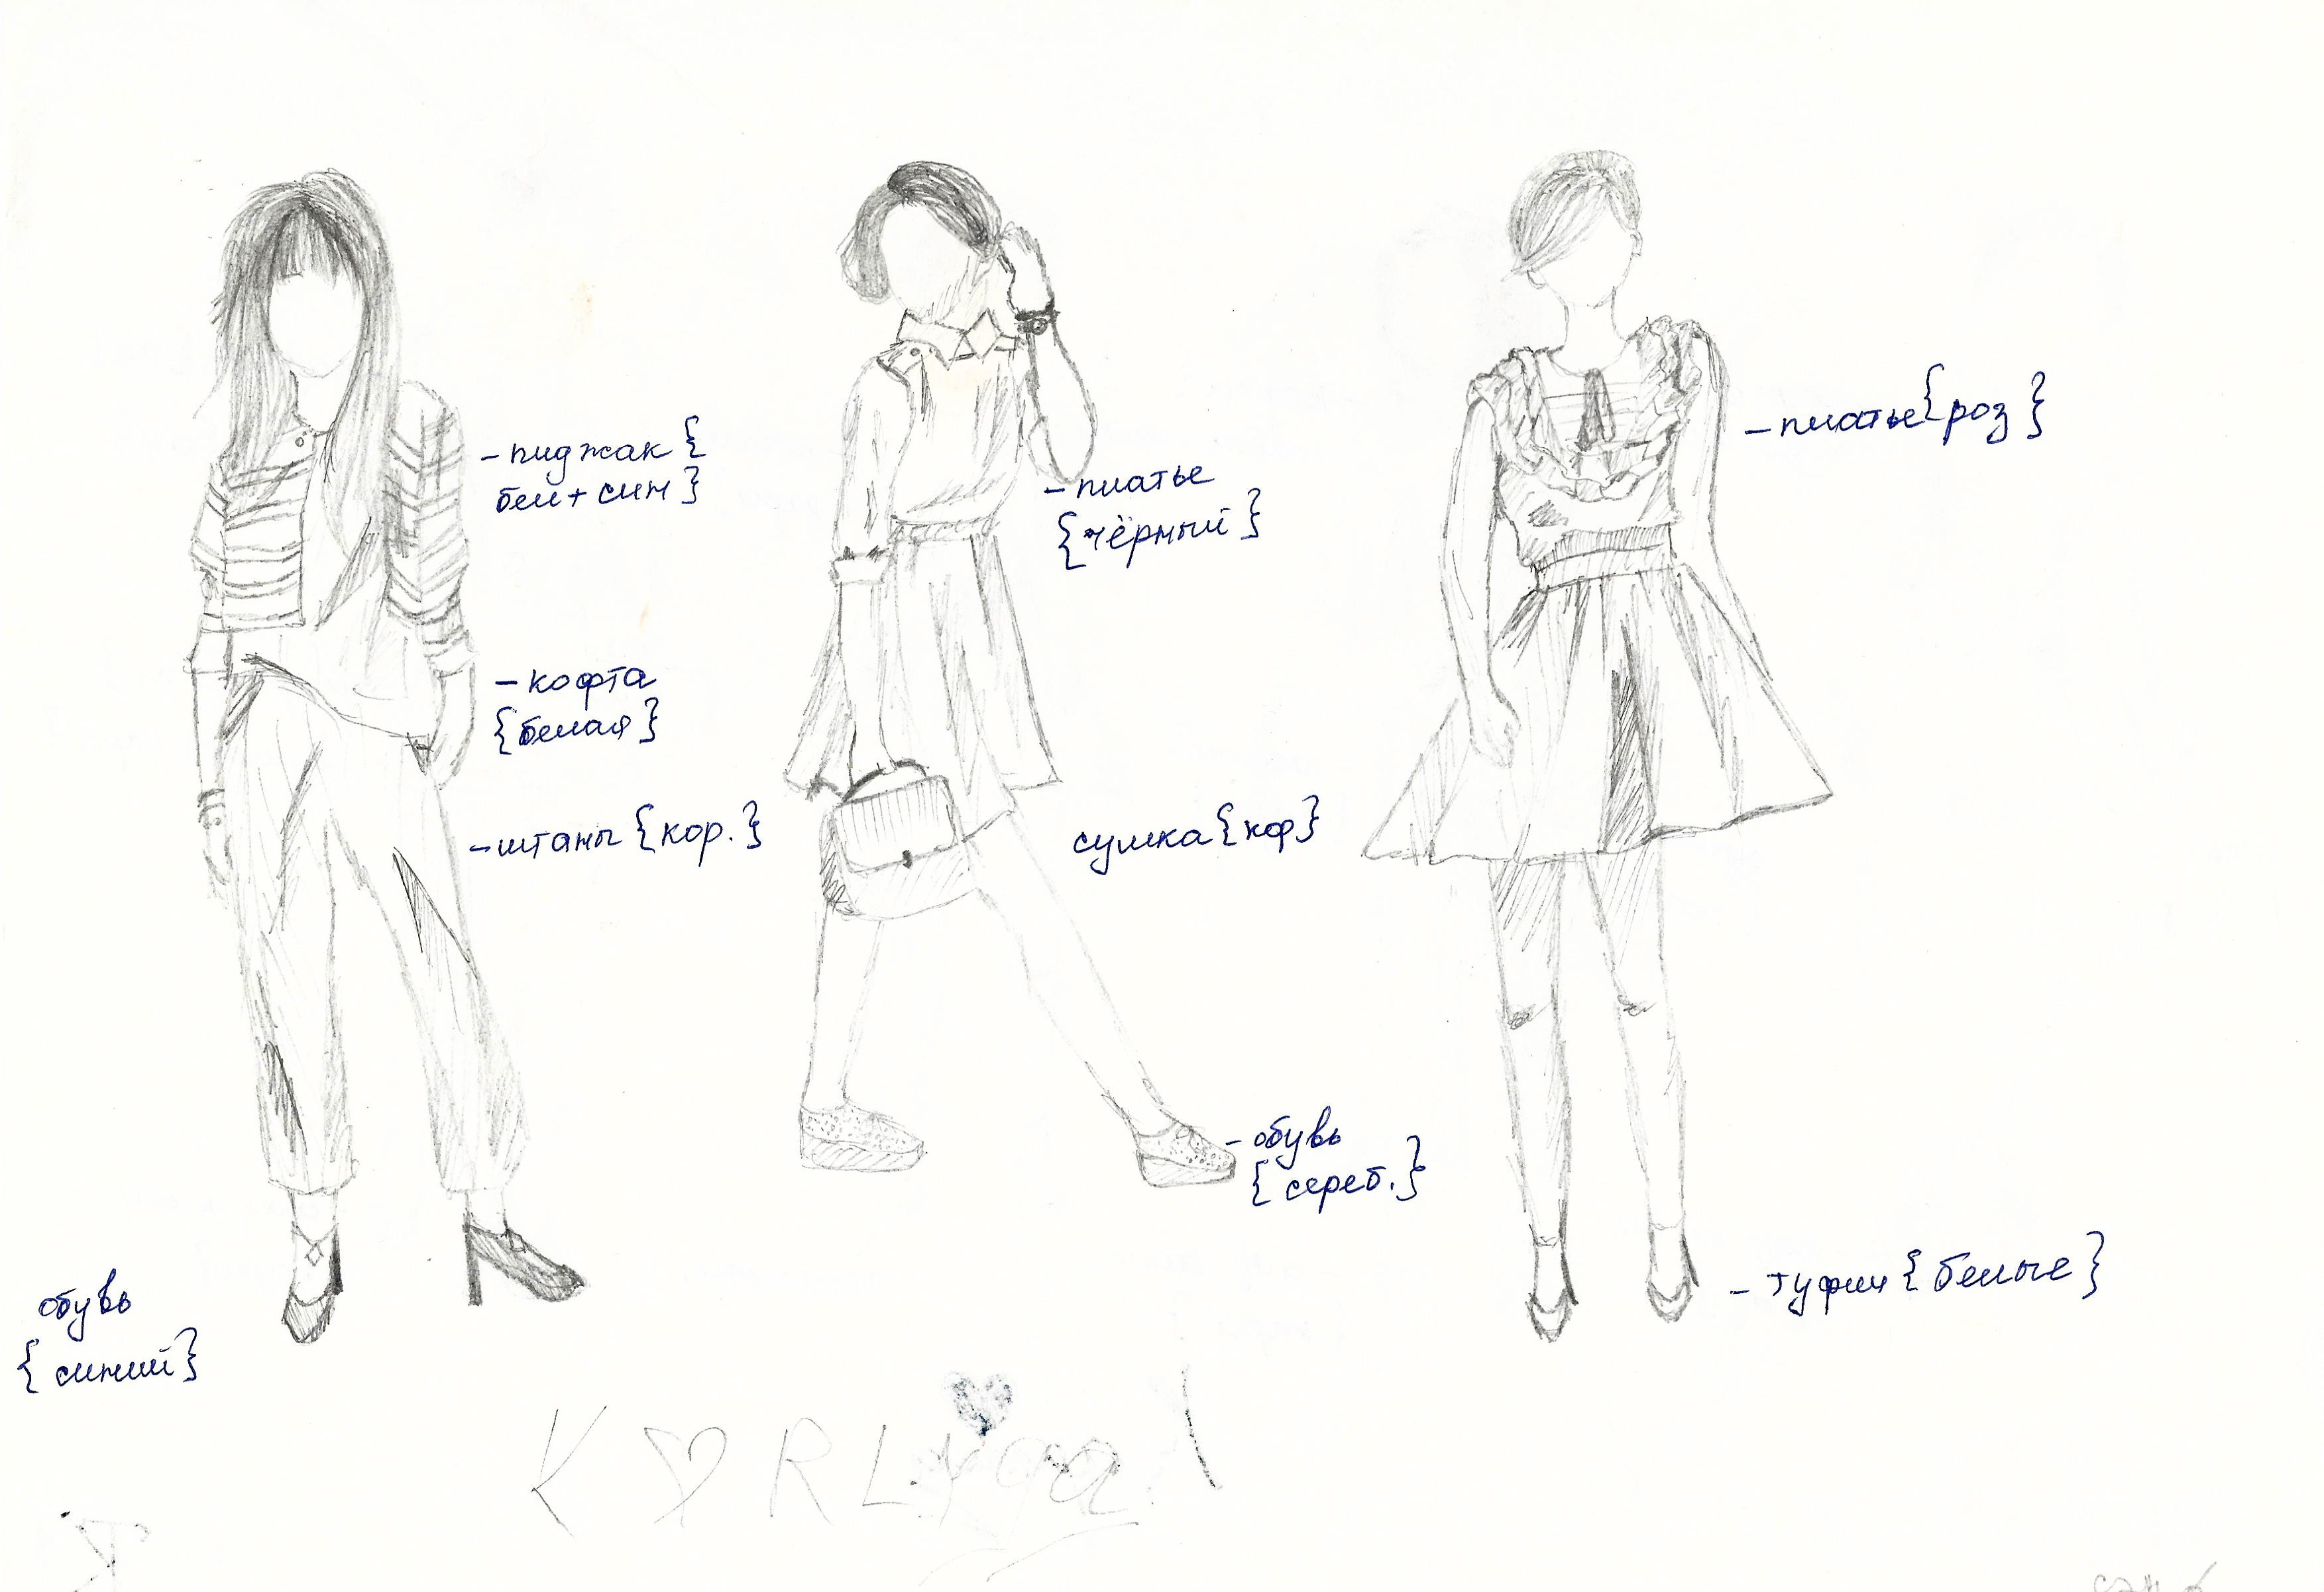 – пиджак {
бел + син }
– кофта
{ белая }
– штаны { кор. }
обувь
{ синий }
– платье
{ чёрный }
сумка { кор }
– обувь
{ сереб. }
– платье { роз }
– туфли { белые }